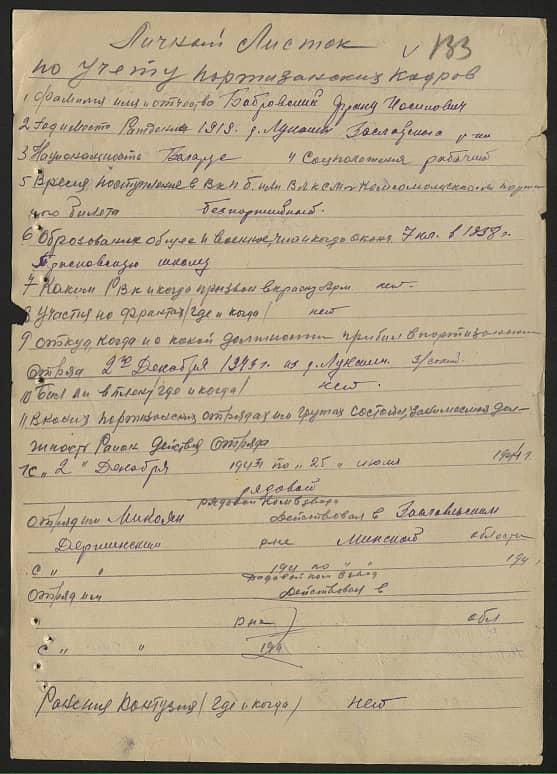 Личный Листок
по учету партизанских кадров
v 133
1 Фамилия имя и отчество Бобровский Франц Иосипович
2 Год и место Рождения 1919. д. Лукаши Заславского р-на
3 Национальность Беларус 4 Соцположения рабочий
5 Время поступления в ВКП б. или ВЛКСМ и № Комсомольского или партий
ного билета безпартийный.
6 Образования общее и военное, что и когда оконч. 7 кл. в 1938 г.
школу
7 Каким РВК и когда призван в красну Арм. нет.
8 Участия на фронтах /где и когда/ нет
9 Откуд, когда и на какой должности прибыл в партизанский
Отряд 2го Декабря 1943 г. из д. Лукаши.
10 Был ли в плену /где и когда/ нет.
11 В каких партизанских отрядах или групах состоял, занимаемая дол-
жность Район действия Отряда
С „ 2 " Декабря 1943 по „ 25 „ июля 1944 г.
рядовой
рядовой Комвзвода
отряд им Микоян Действовал в Заславльским
Дзержинский р-не Минской области
С „ " 194 по " " 194 г.
Рядовой ком взвод
Отряд им Действовал в
р-не обл
С „ " 194
Ранения Контузия /где и когда/ нет